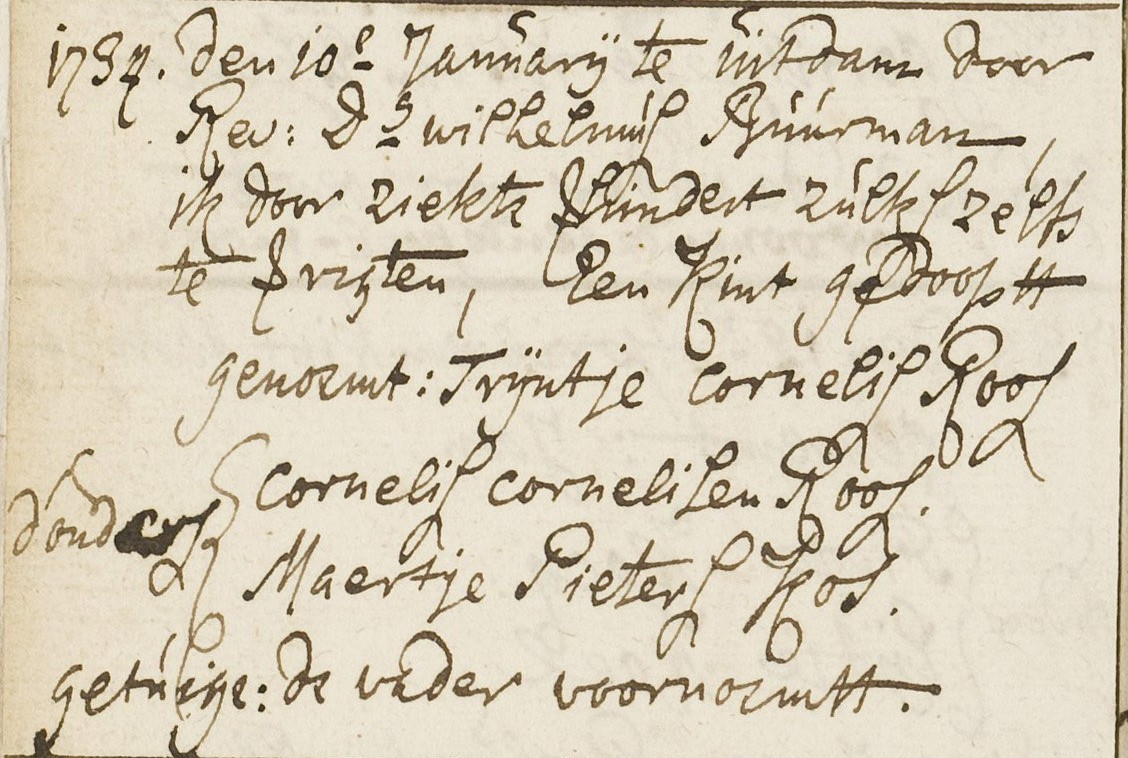 1734. den 10e Januarij te uitdam door
Rev: Ds wilhelmus Buurman,
ik door ziekte hindert zulks zelfs
te vrigten, Een Kint gedooptt
genoemt: Trijntje Cornelis Roos
Cornelis cornelisen Roos.
d'ouders
Maertje Pieters Kos.
getuige: de vader voornoemtt.